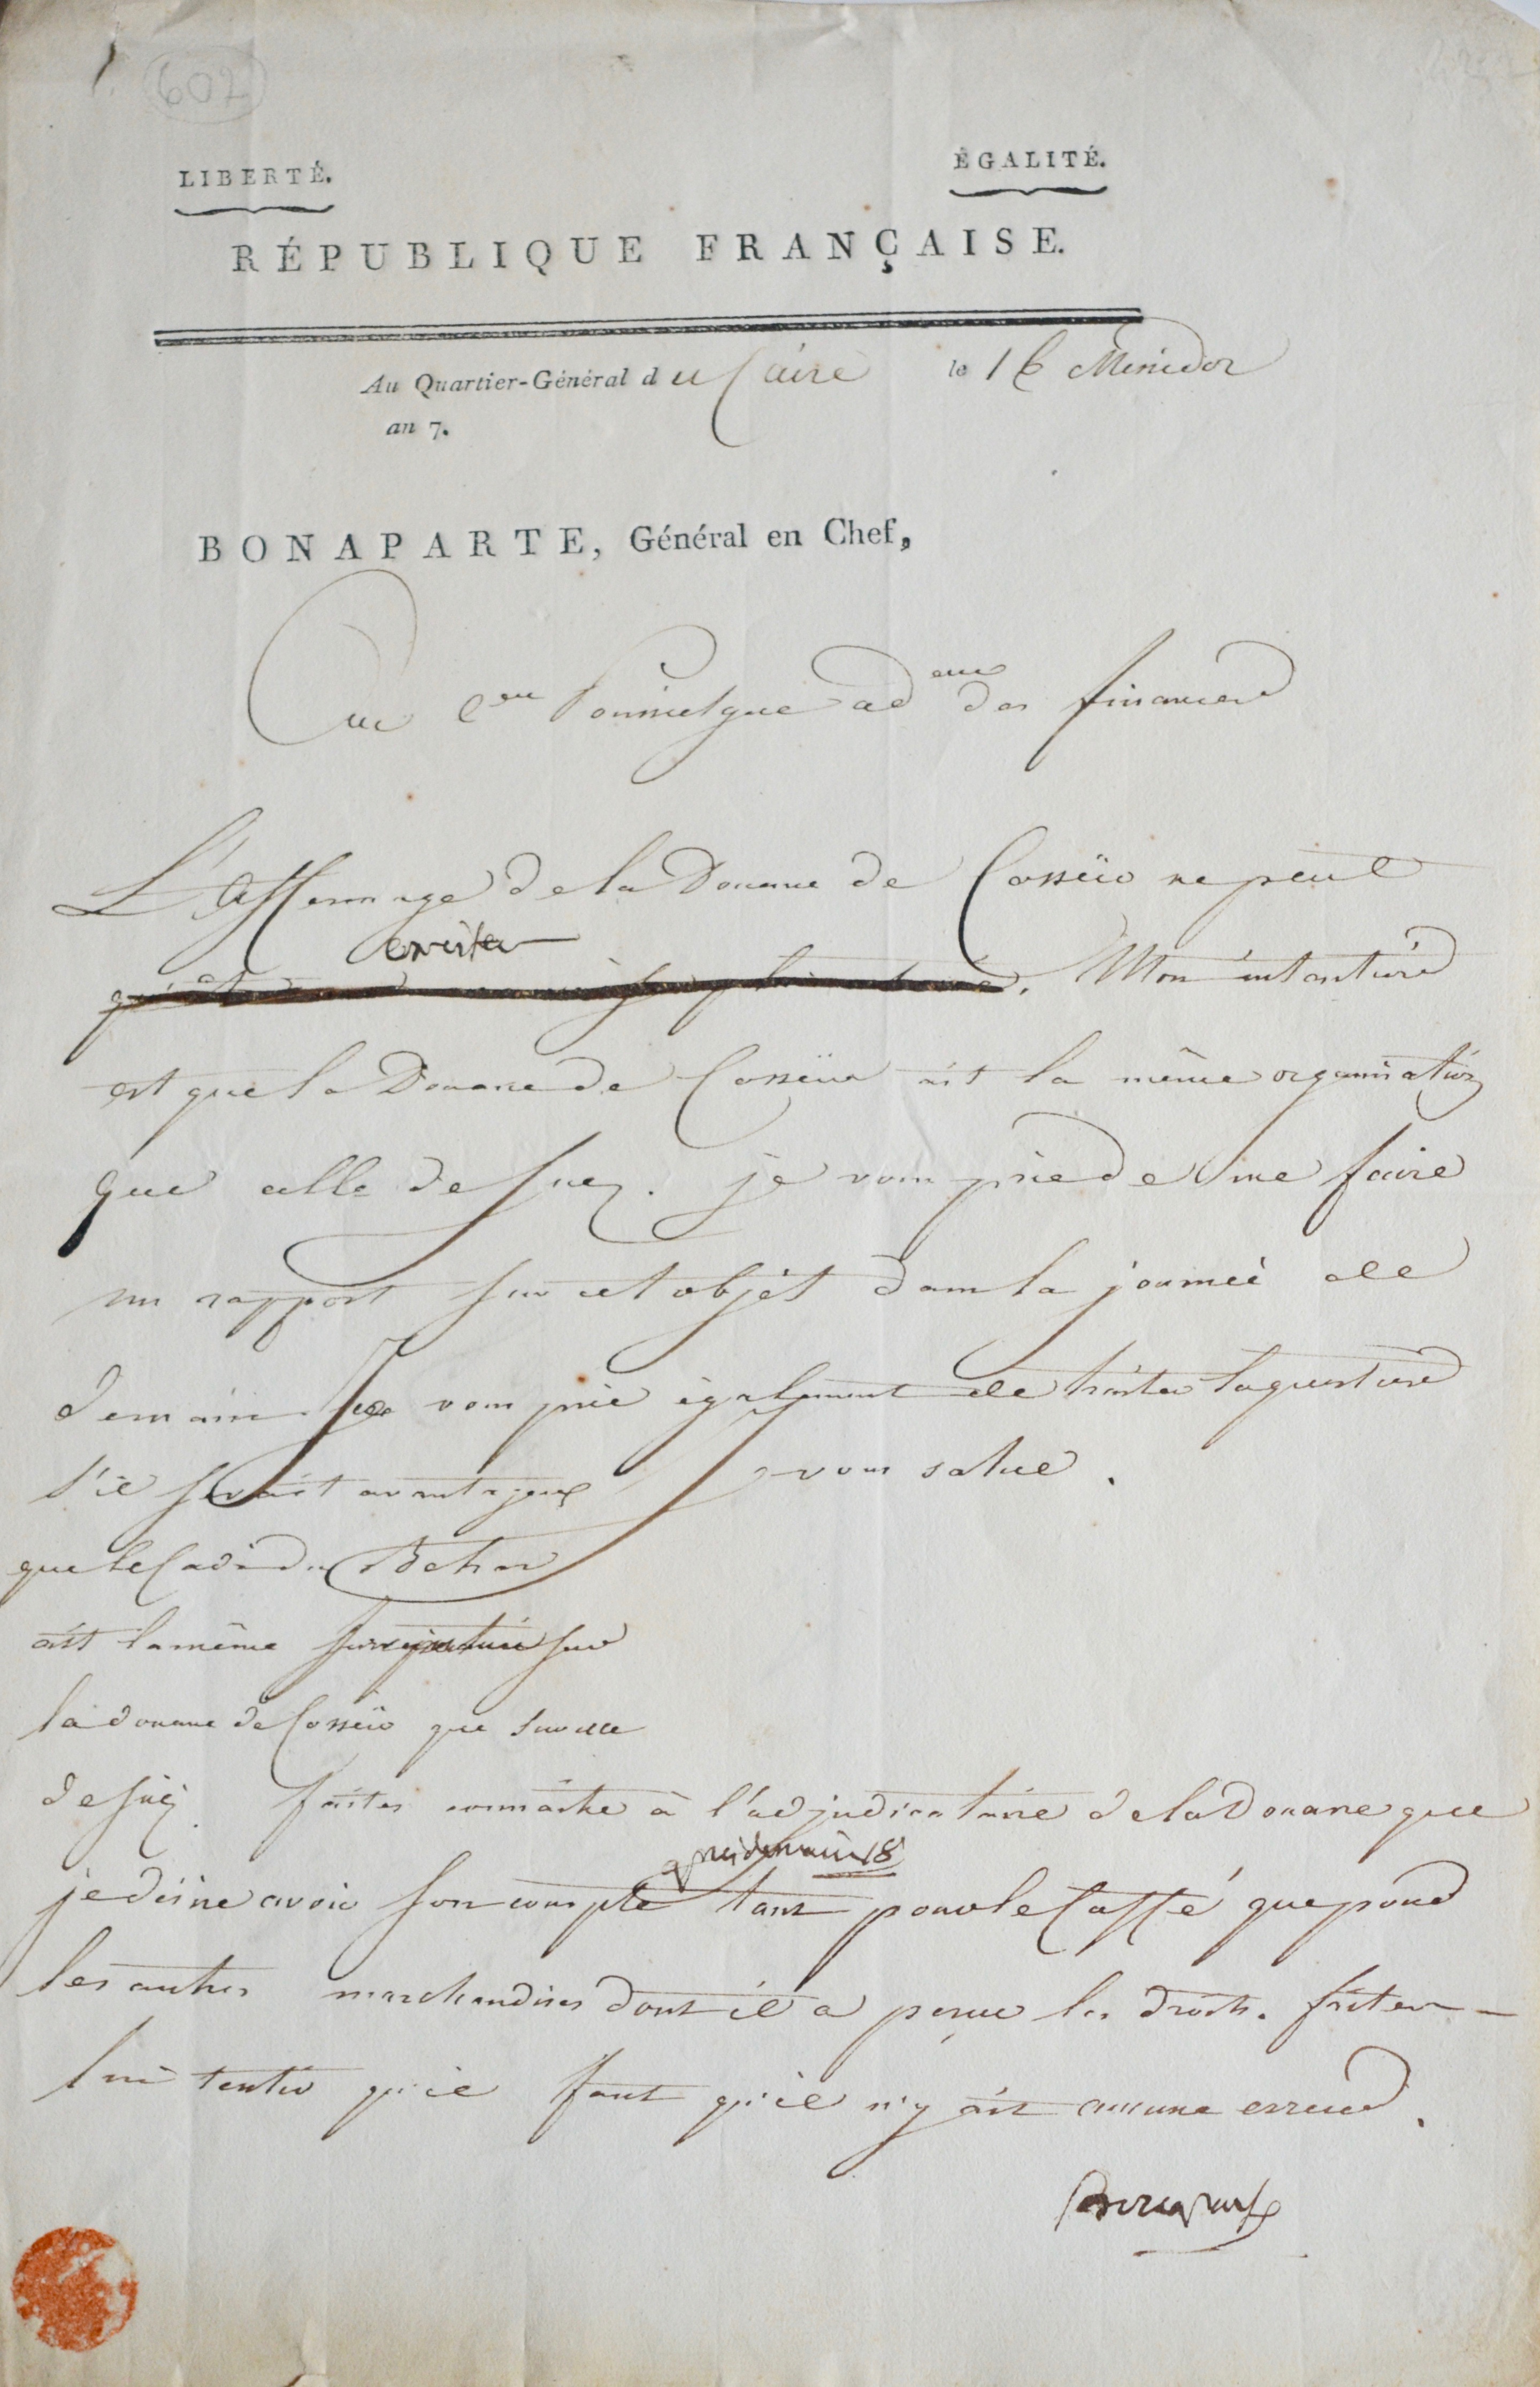 602
LIBERTÉ.
ÉGALITÉ.
RÉPUBLIQUE FRANÇAISE.
Au Quartier-Général du Caire le 16 Messidor
an 7.
BONAPARTE, Général en Chef,
Au Cen Poussielgue ad eur des finances
L'affermage de la Douane de Cosseïr ne peut
exister
. Mon intention
est que la Douane de Cosseïr ait la même organisation
que celle de Suez. je vous prie de me faire
un rapport sur cet objet dans la journée de
demain. Je vous prie également de traiter la question
s'il serait avantageux
je vous salue.
que le Cadi du Behar
ait la même sur
la douane de Cosseïr que sur celle
de Suez. faites connaître à l'adjudicataire de la Douane que
après demain 18
je désire avoir son compte tant pour le Caffé que pour
les autres marchandises dont il a perçu les droits. faites-
lui sentir qu'il faut qu'il n'y ait aucune erreur.
Bonaparte